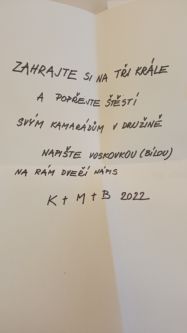 ZAHRAJTE SI NA TŘI KRÁLE
A POPŘEJTE ŠTĚSTÍ
SVÝM KAMARÁDŮM V DRUŽINĚ
NAPIŠTE VOSKOVKOU (BÍLOU)
NA RÁM DVEŘÍ NÁPIS
K + M + B 2022